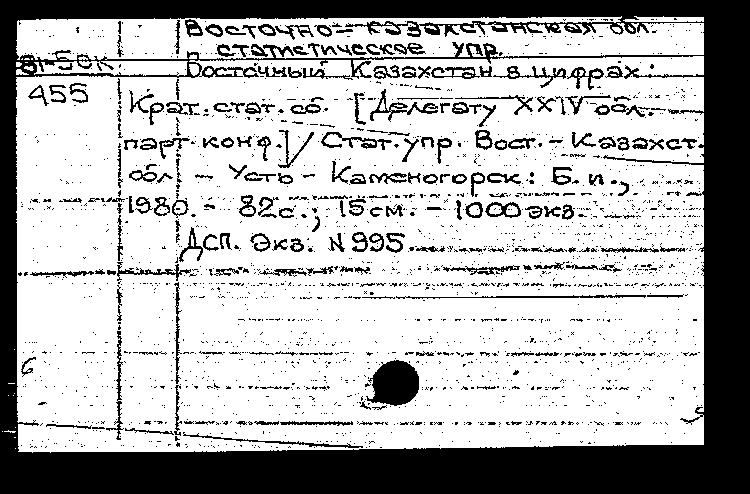 Восточно-казахстанская обл.
статистическое упр.
81-50к Восточный Казахстан в цифрах:
455 Крат.стат.сб. [Делегату XXIV обл.
парт.конф.]/ Стат.упр. Вост.-Казахст.
обл. - Усть-Каменогорск: Б.и.,
1980.- 82с.; 15см. - 1000экз.
ДСП. Экз. N 995.
6